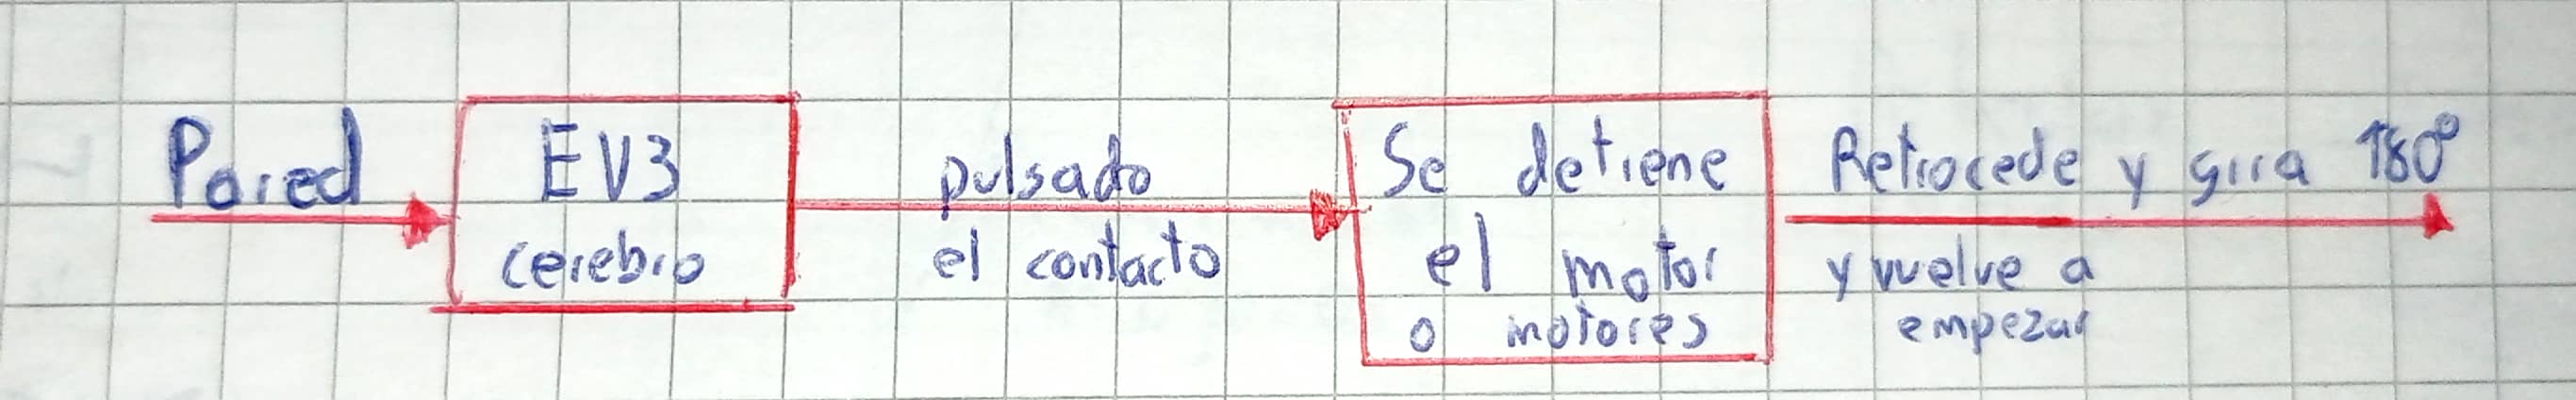 Pared
EV3
cerebro
pulsado
el contacto
Se detiene
el motor
o motores
Retrocede y gira 180º
y vuelve a
empezar